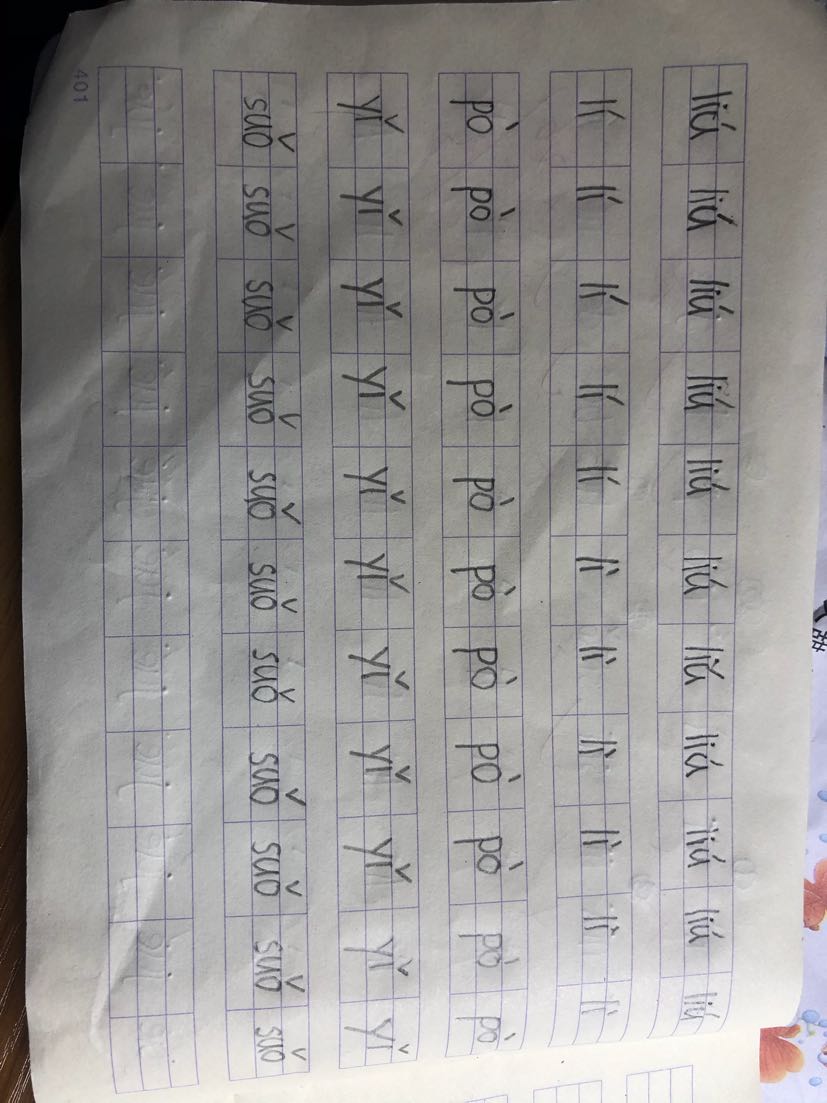 liú liú liú liú liú liú liú liú liú liú liú
lí lí lí lí lí lì lì lì lì lì lì
pò pò pò pò pò pò pò pò pò pò pò
yǐ yǐ yǐ yǐ yǐ yǐ yǐ yǐ yǐ yǐ yǐ
suǒ suǒ suǒ suǒ suǒ suǒ suǒ suǒ suǒ suǒ suǒ
401